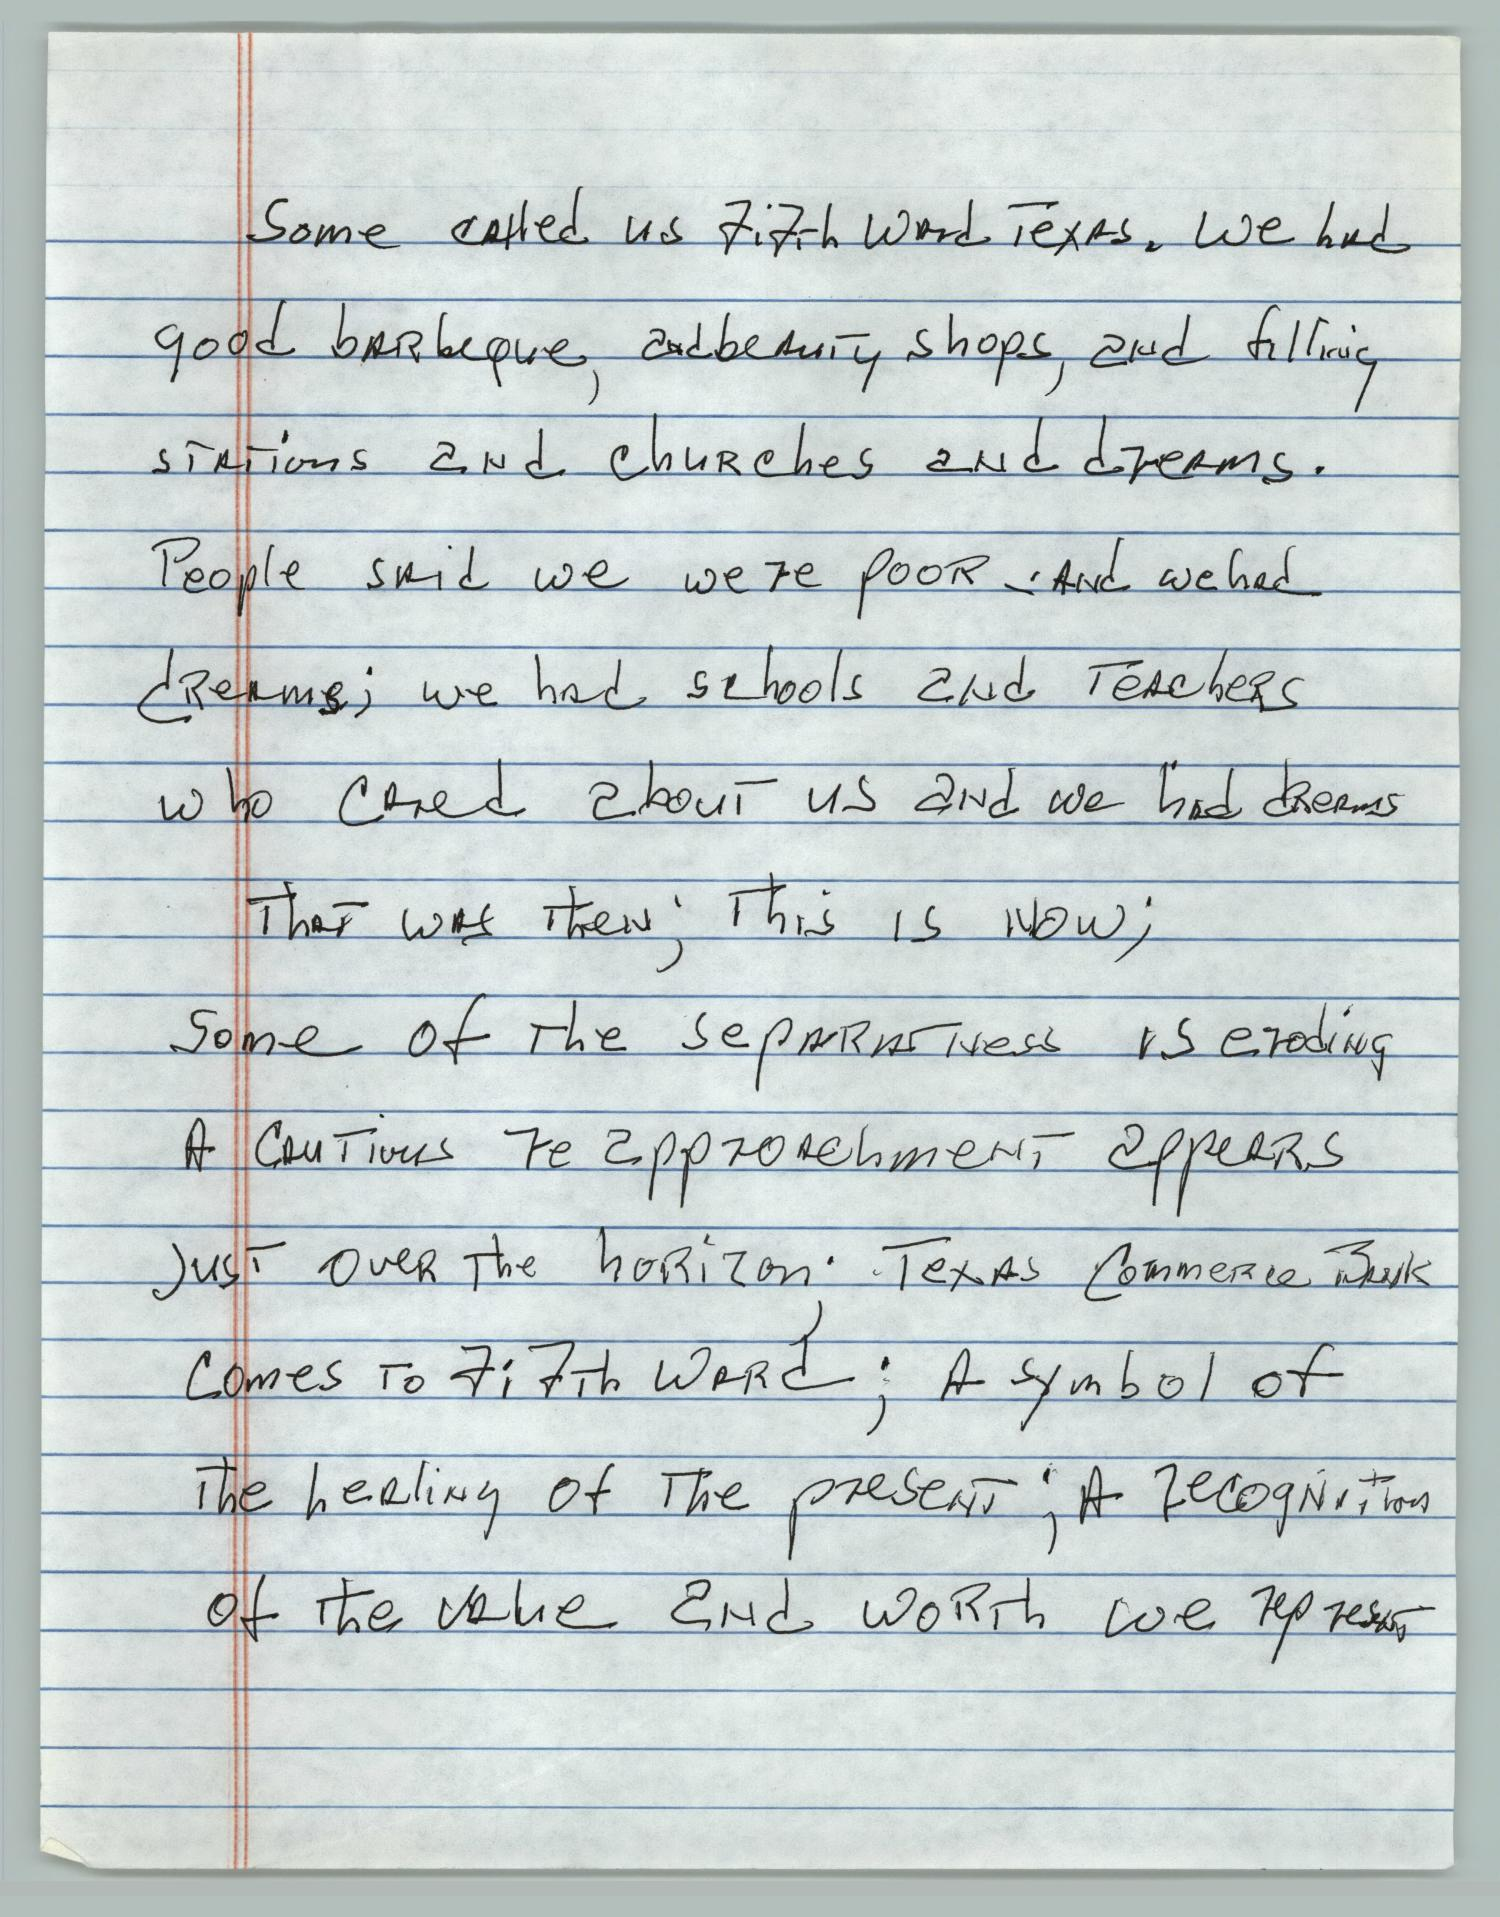 Some called us Fifth Ward Texas. We had
good barbeque, and beauty shops, and filling
stations and churches and dreams.
People said we were poor - and we had
dreams; we had schools and Teachers
who cared about us and we had dreams
That was then; This is now;
Some of the separatness is eroding
A cautious re approachment appears
Just over the horizon; Texas Commerce Bank
Comes to Fifth Ward; A symbol of
The healing of the present; A recognition
of the value and worth we represent